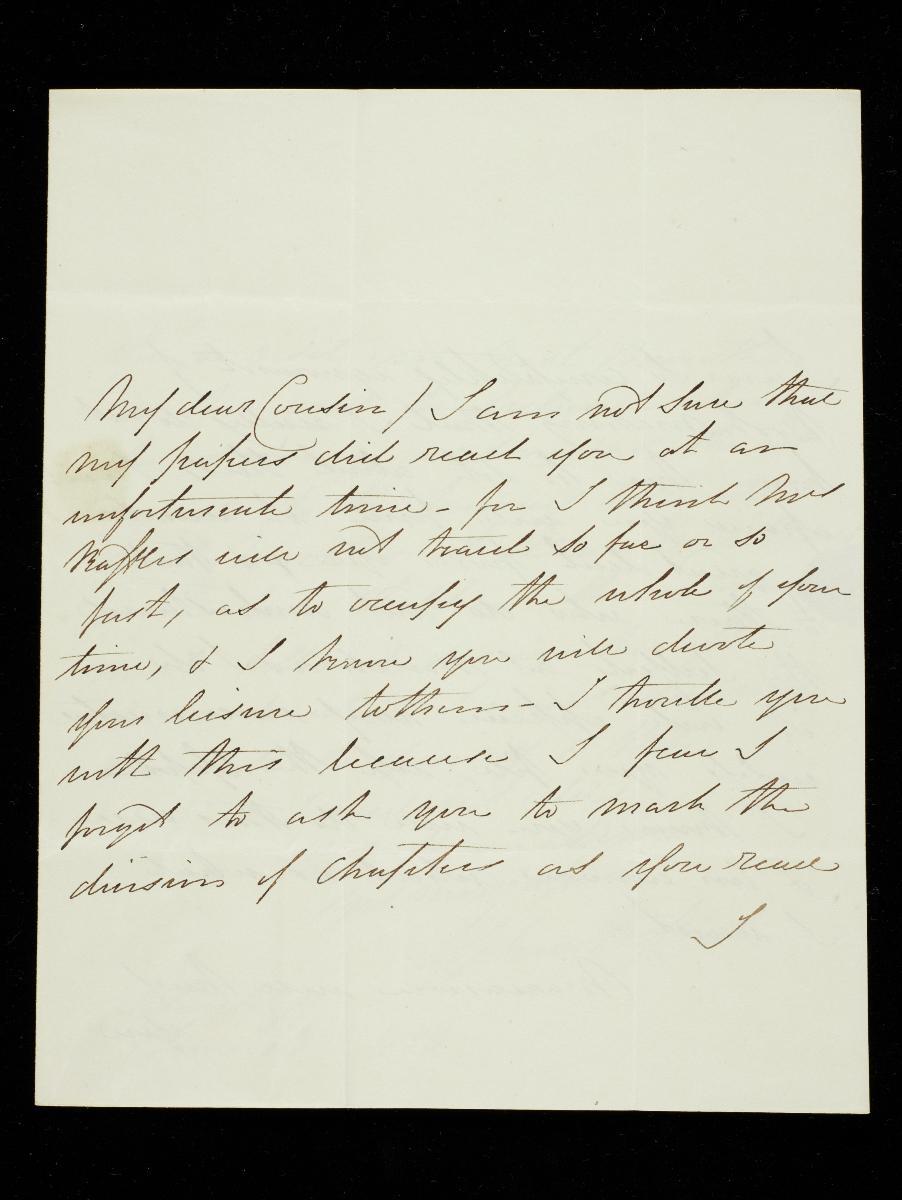 My dear Cousin / I am not sure that
my papers did reach you at an
unfortunate time - for I think Mrs
Raffles will not travel so far or so
fast, as to occupy the whole of your
time, & I know you will devote
your leisure to them - I trouble you
with this because I fear I
forgot to ask you to mark the
division of Chapters as you read
I